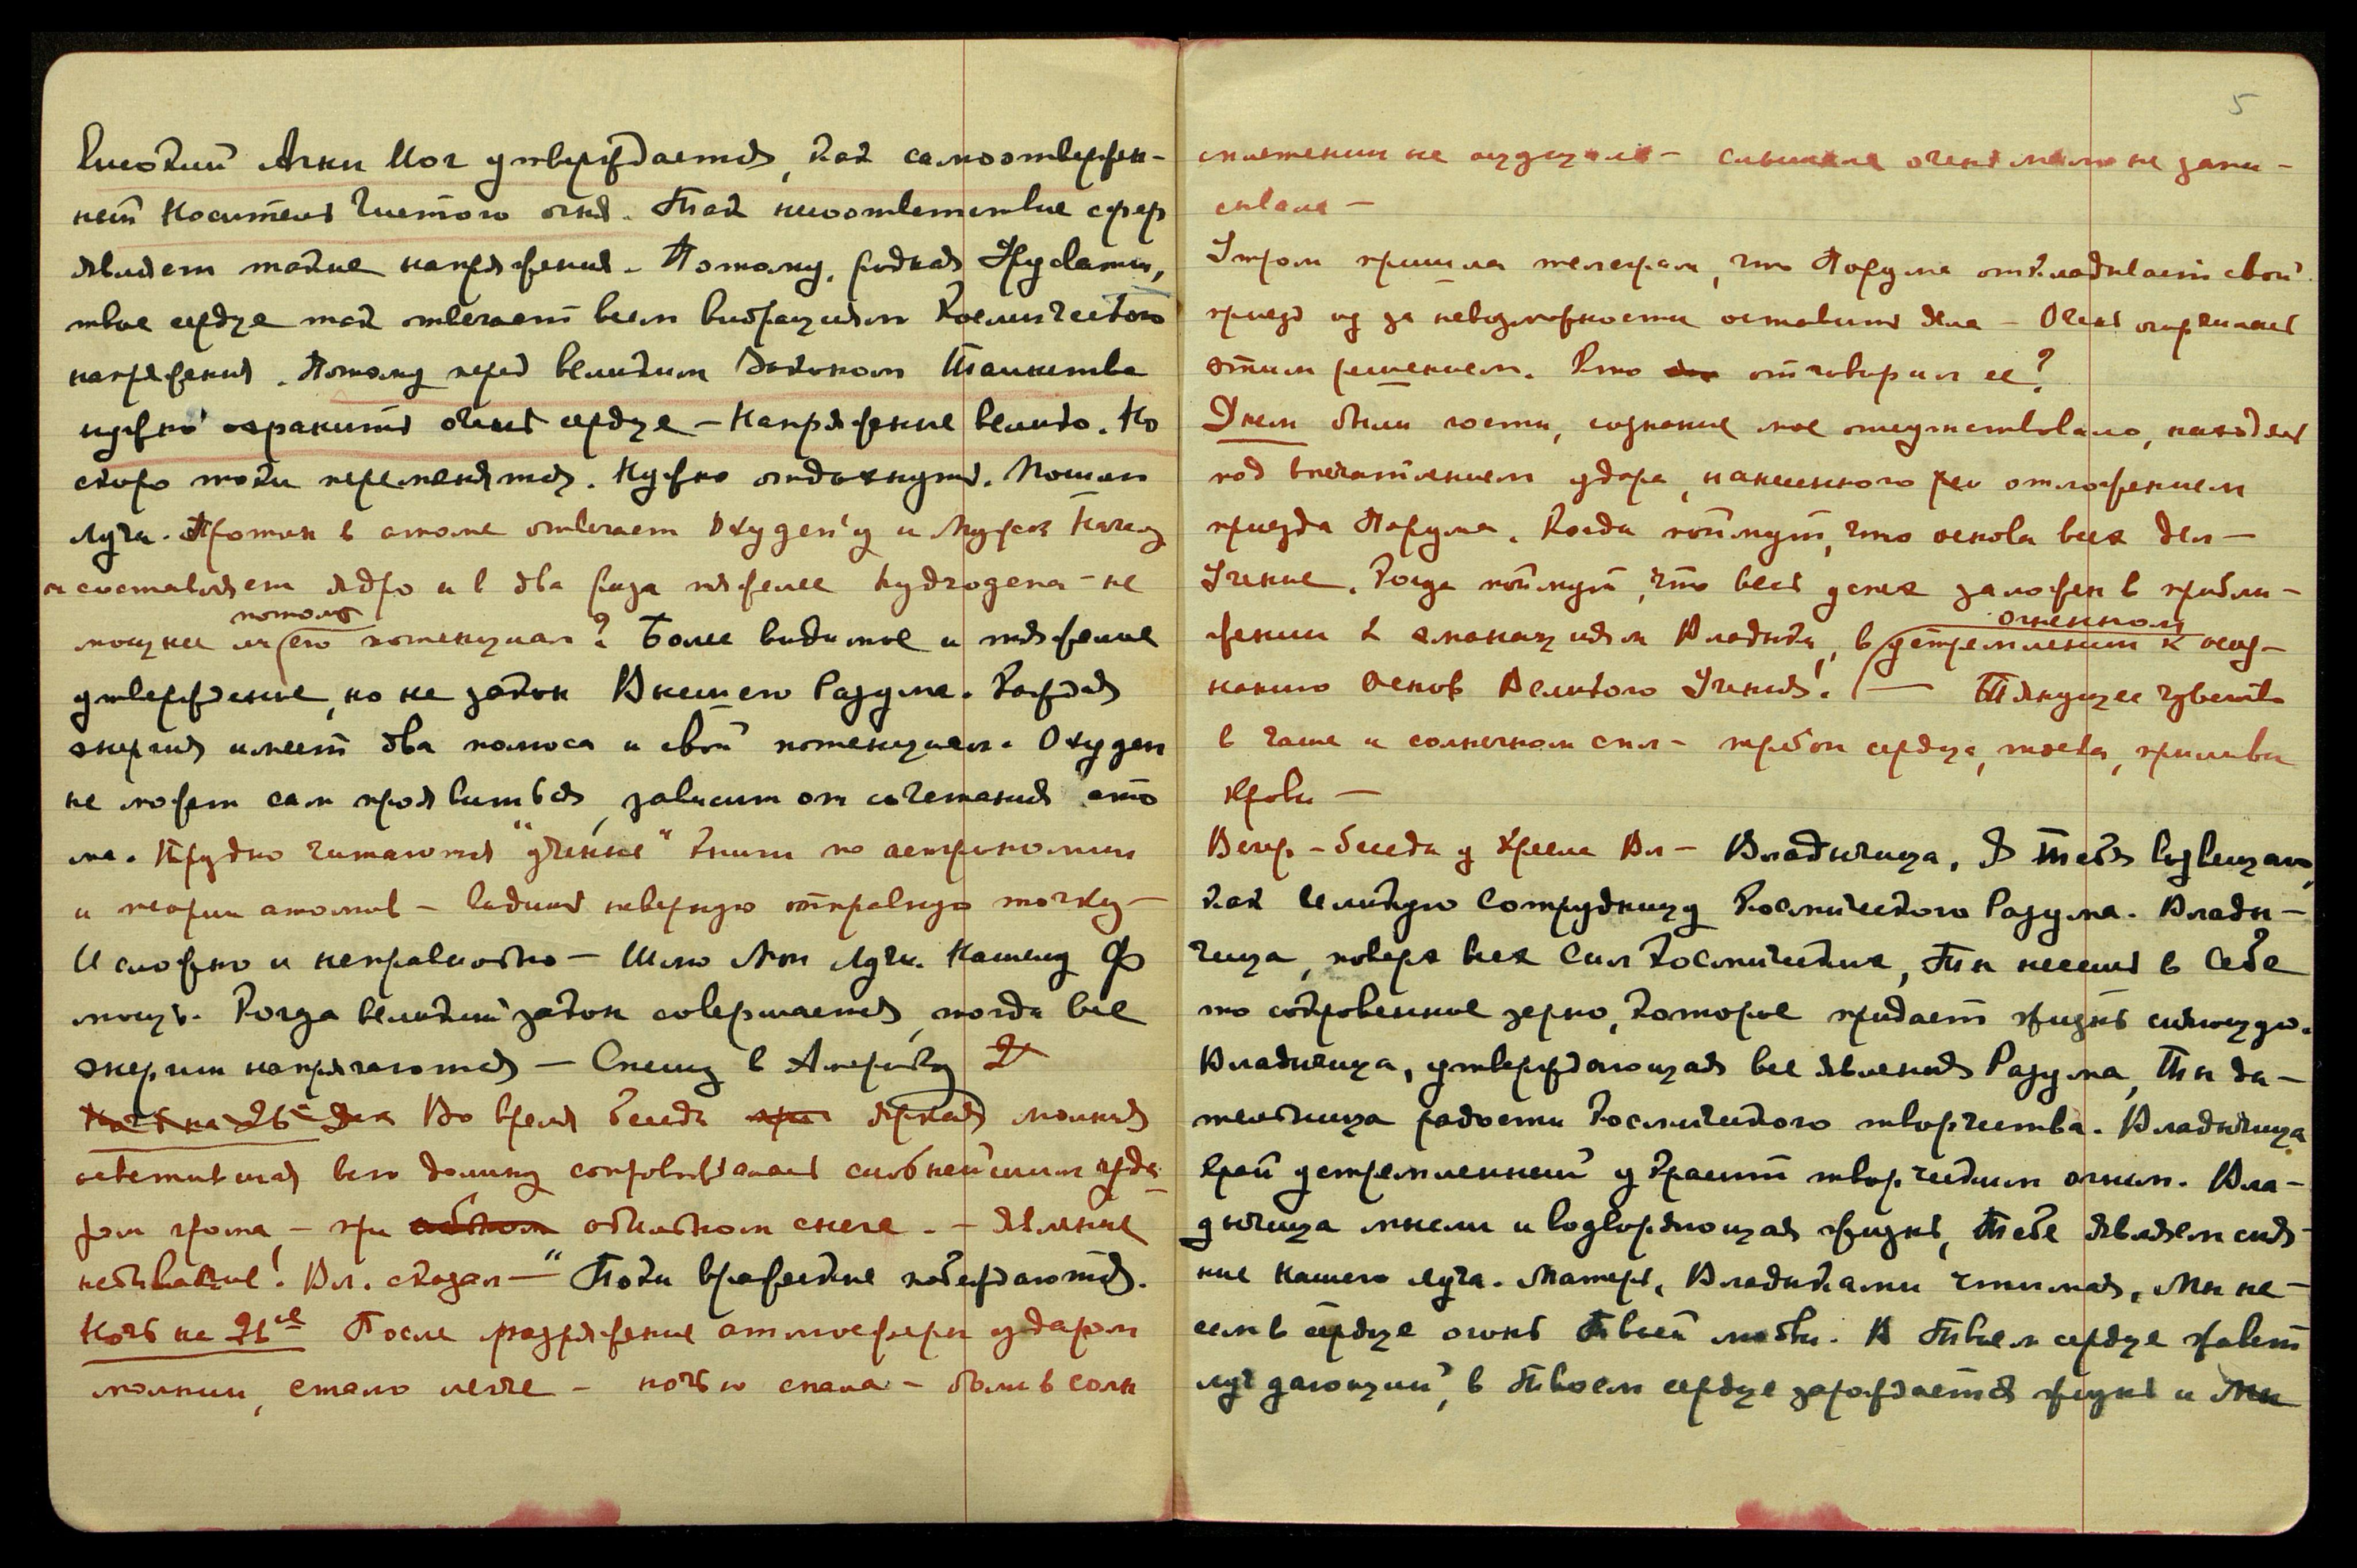 Высокий Агни Йог утверждается, как самоотвержен-
ный Носитель Чистого огня. Так несоответствие сфер
являет такие напряжения. Потому, родная Урусвати,
твое сердце так отвечает всем вибрациям Космического
напряжения. Потому перед великим Законом Таинства
нужно охранить очень сердце – Напряжение велико. Но
скоро токи переменятся. Нужно отдохнуть. Пошлем
Луча. Протон в атоме отвечает Oxygen'у и Мужск Началу
и составляет ядро и в два раза тяжелее hydrogena – не
потому
мощнее ли его потенциал? Более видимое и тяжелое
утверждение, но не закон Высшего Разума. Каждая
энергия имеет два полюса и свой потенциал. Oxygen
не может сам проявиться, зависит от сочетания ато
ма. Трудно читаются "ученые" книги по астрономии
и теории атомов – неверную отправную точку –
И сложно и неправильно – Шлю Мои Лучи. Нашему Ф
мощь. Когда великий закон совершается, тогда все
энергии напрягаются – Спешу в Америку
Ночь на 2 Во время беседы яркая молния
осветившая всю долину сопровождалась сильнейшим уда
ром грома – при обильном снеге. – Явление
небывалое! Вл. сказал – "Токи вражеские побеждаются.
Ночь на 21ое После разряжения атмосферы ударом
молнии, стало легче – ночью спала – были в солн
5
сплетении не ощущала – слышала очень мало не запи-
сывала –
Утром пришла телеграм, что Порума откладывает свой
приезд из за невозможности оставить дела – Очень огорчилась
этим решением. Кто отговорил ее?
Днем были гости, сознание мое отсутствовало, находясь
под впечатлением удара, нанесенного отложением
приезда Порумы. Когда поймут, что основа всех дел –
Учение. Когда поймут, что весь успех заложен в прибли-
огненном
жении к эманациям Владыки, в устремлении к осоз-
нанию Основ Великого Учения! – Тянущее чувство
в чаше и солнечном спл – трепет сердца, тоска, приливы
крови –
Вечер – беседа у Кресла Вл – Владычица, Я Тебя возвещаю,
как великую Сотрудницу Космического Разума. Влады-
чица, поверх всех Сил Космических, Ты несешь в Себе
то сокровенное зерно, которое придает жизнь сияющую.
Владычица, утверждающая все явления Разума, Ты да-
тельница радости Космического творчества. Владычица
край устремленный украсит творческим огнем. Вла-
дычица мысли и водворяющая жизнь, Тебе являем сия-
ние Нашего луча. Матерь, Владыками чтимая, Мы не-
сем в сердце огонь Твоей любви. В Твоем сердце живет
луч дающий, в Твоем сердце зарождается жизнь и Мы